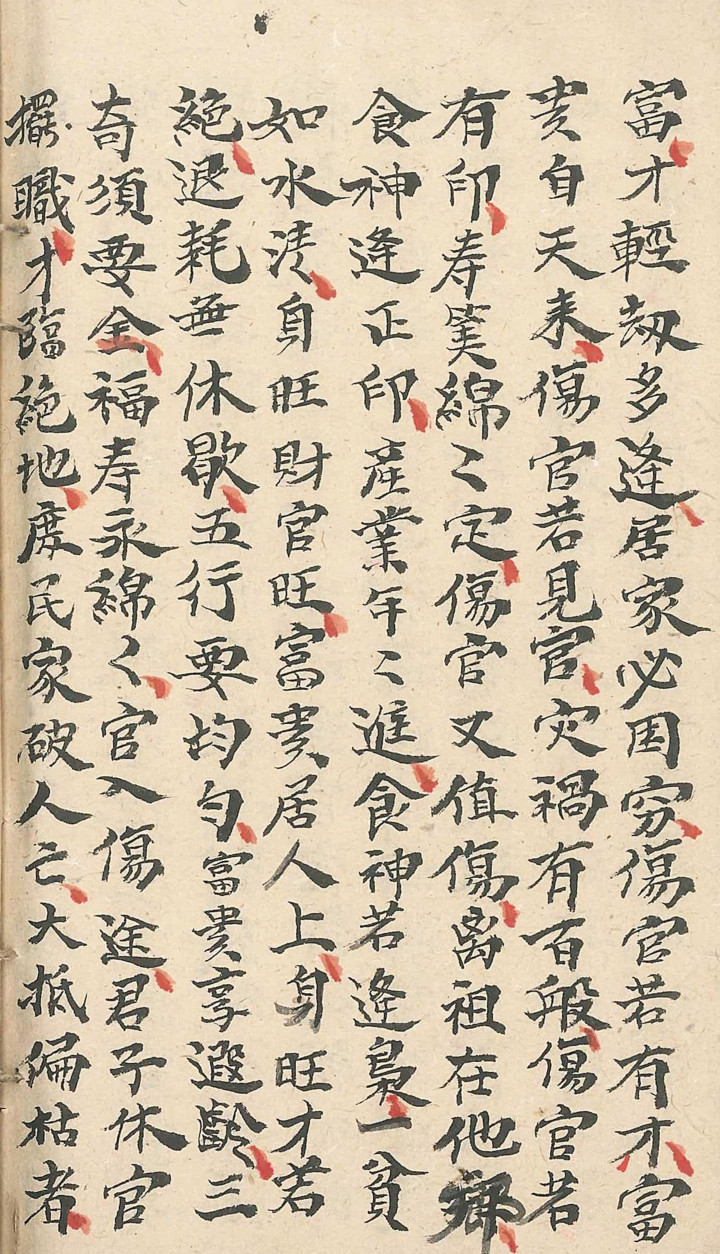 富才輕刼多逢居家必困穷傷官若有才富
贵自天来傷官若見官灾禍有百般傷官若
有印寿筭綿〻定傷官又值傷离祖在他鄉
食神逢正印産業年〻進食神若逢梟一貧
如水洗身旺財官旺富贵居人上身旺才若
絕退耗無休歇五行要均匀富貴享遐齡三
奇須要全福寿永綿〻官入傷途君子休官
擺職才臨絕地庶民家破人亡大抵偏枯者